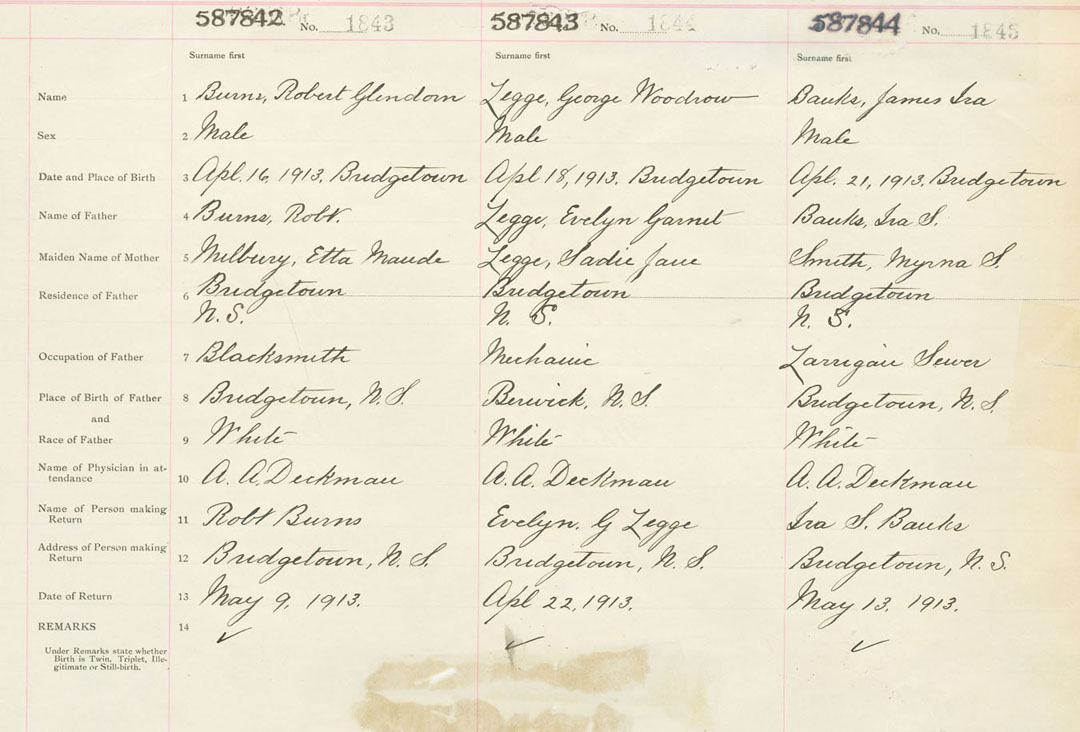 587842 No. 1843 587843 No. 1844 587844 No. 1845
Surname first Surname first Surname first
Name 1 Burns, Robert Glendorn Legge, George Woodrow Banks, James Ira
Sex 2 Male Male Male
Date and Place of Birth 3 Apl. 16, 1913. Bridgetown Apl 18, 1913. Bridgetown Apl. 21, 1913. Bridgetown
Name of Father 4 Burns, Robt. Legge, Evelyn Garnet Banks, Ira S.
Maiden Name of Mother 5 Milbury, Etta Maude Legge, Sadie Jane Smith, Myrna S.
Residence of Father 6 Bridgetown Bridgetown Bridgetown
N.S. N. S. N. S.
Occupation of Father 7 Blacksmith Mechanic Larrigan Sewer
Place of Birth of Father 8 Bridgetown, N.S. Berwick, N.S. Bridgetown, N.S.
and
Race of Father 9 White White White
Name of Physician in at-
tendance 10 A. A. Deckman A. A. Deckman A. A. Deckman
Name of Person making
Return 11 Robt Burns Evelyn. G Legge Ira S. Banks
Address of Person making
Return 12 Bridgetown, N. S. Bridgetown, N. S. Bridgetown, N. S.
Date of Return 13 May 9, 1913. Apl 22, 1913. May 13, 1913.
REMARKS 14 ✓ ✓ ✓
Under Remarks state whether
Birth is Twin, Triplet, Ille-
gitimate or Still-birth.